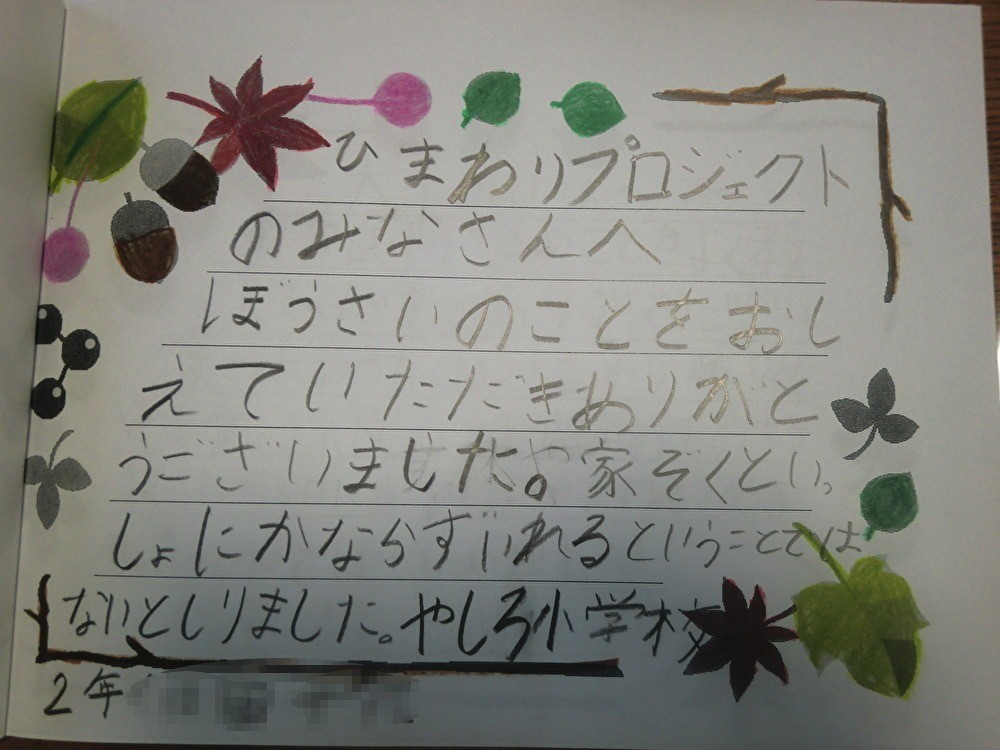 ひまわりプロジェクト
のみなさんへ
ぼうさいのことをおし
えていただきありがと
うございました。家ぞくといっ
しょにかならずいれるということでは
ないとしりました。やしろ小学校
2年